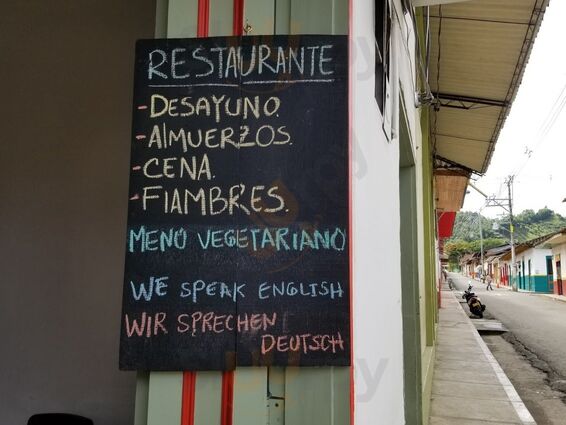 RESTAURANTE
-DESAYUNO.
-AlMUERZOS.
-CENA.
-FIAMBRES.
MENO VEGETARIANO
WE SPEAK ENGLISH
WIR SPRECHEN
DEUTSCH